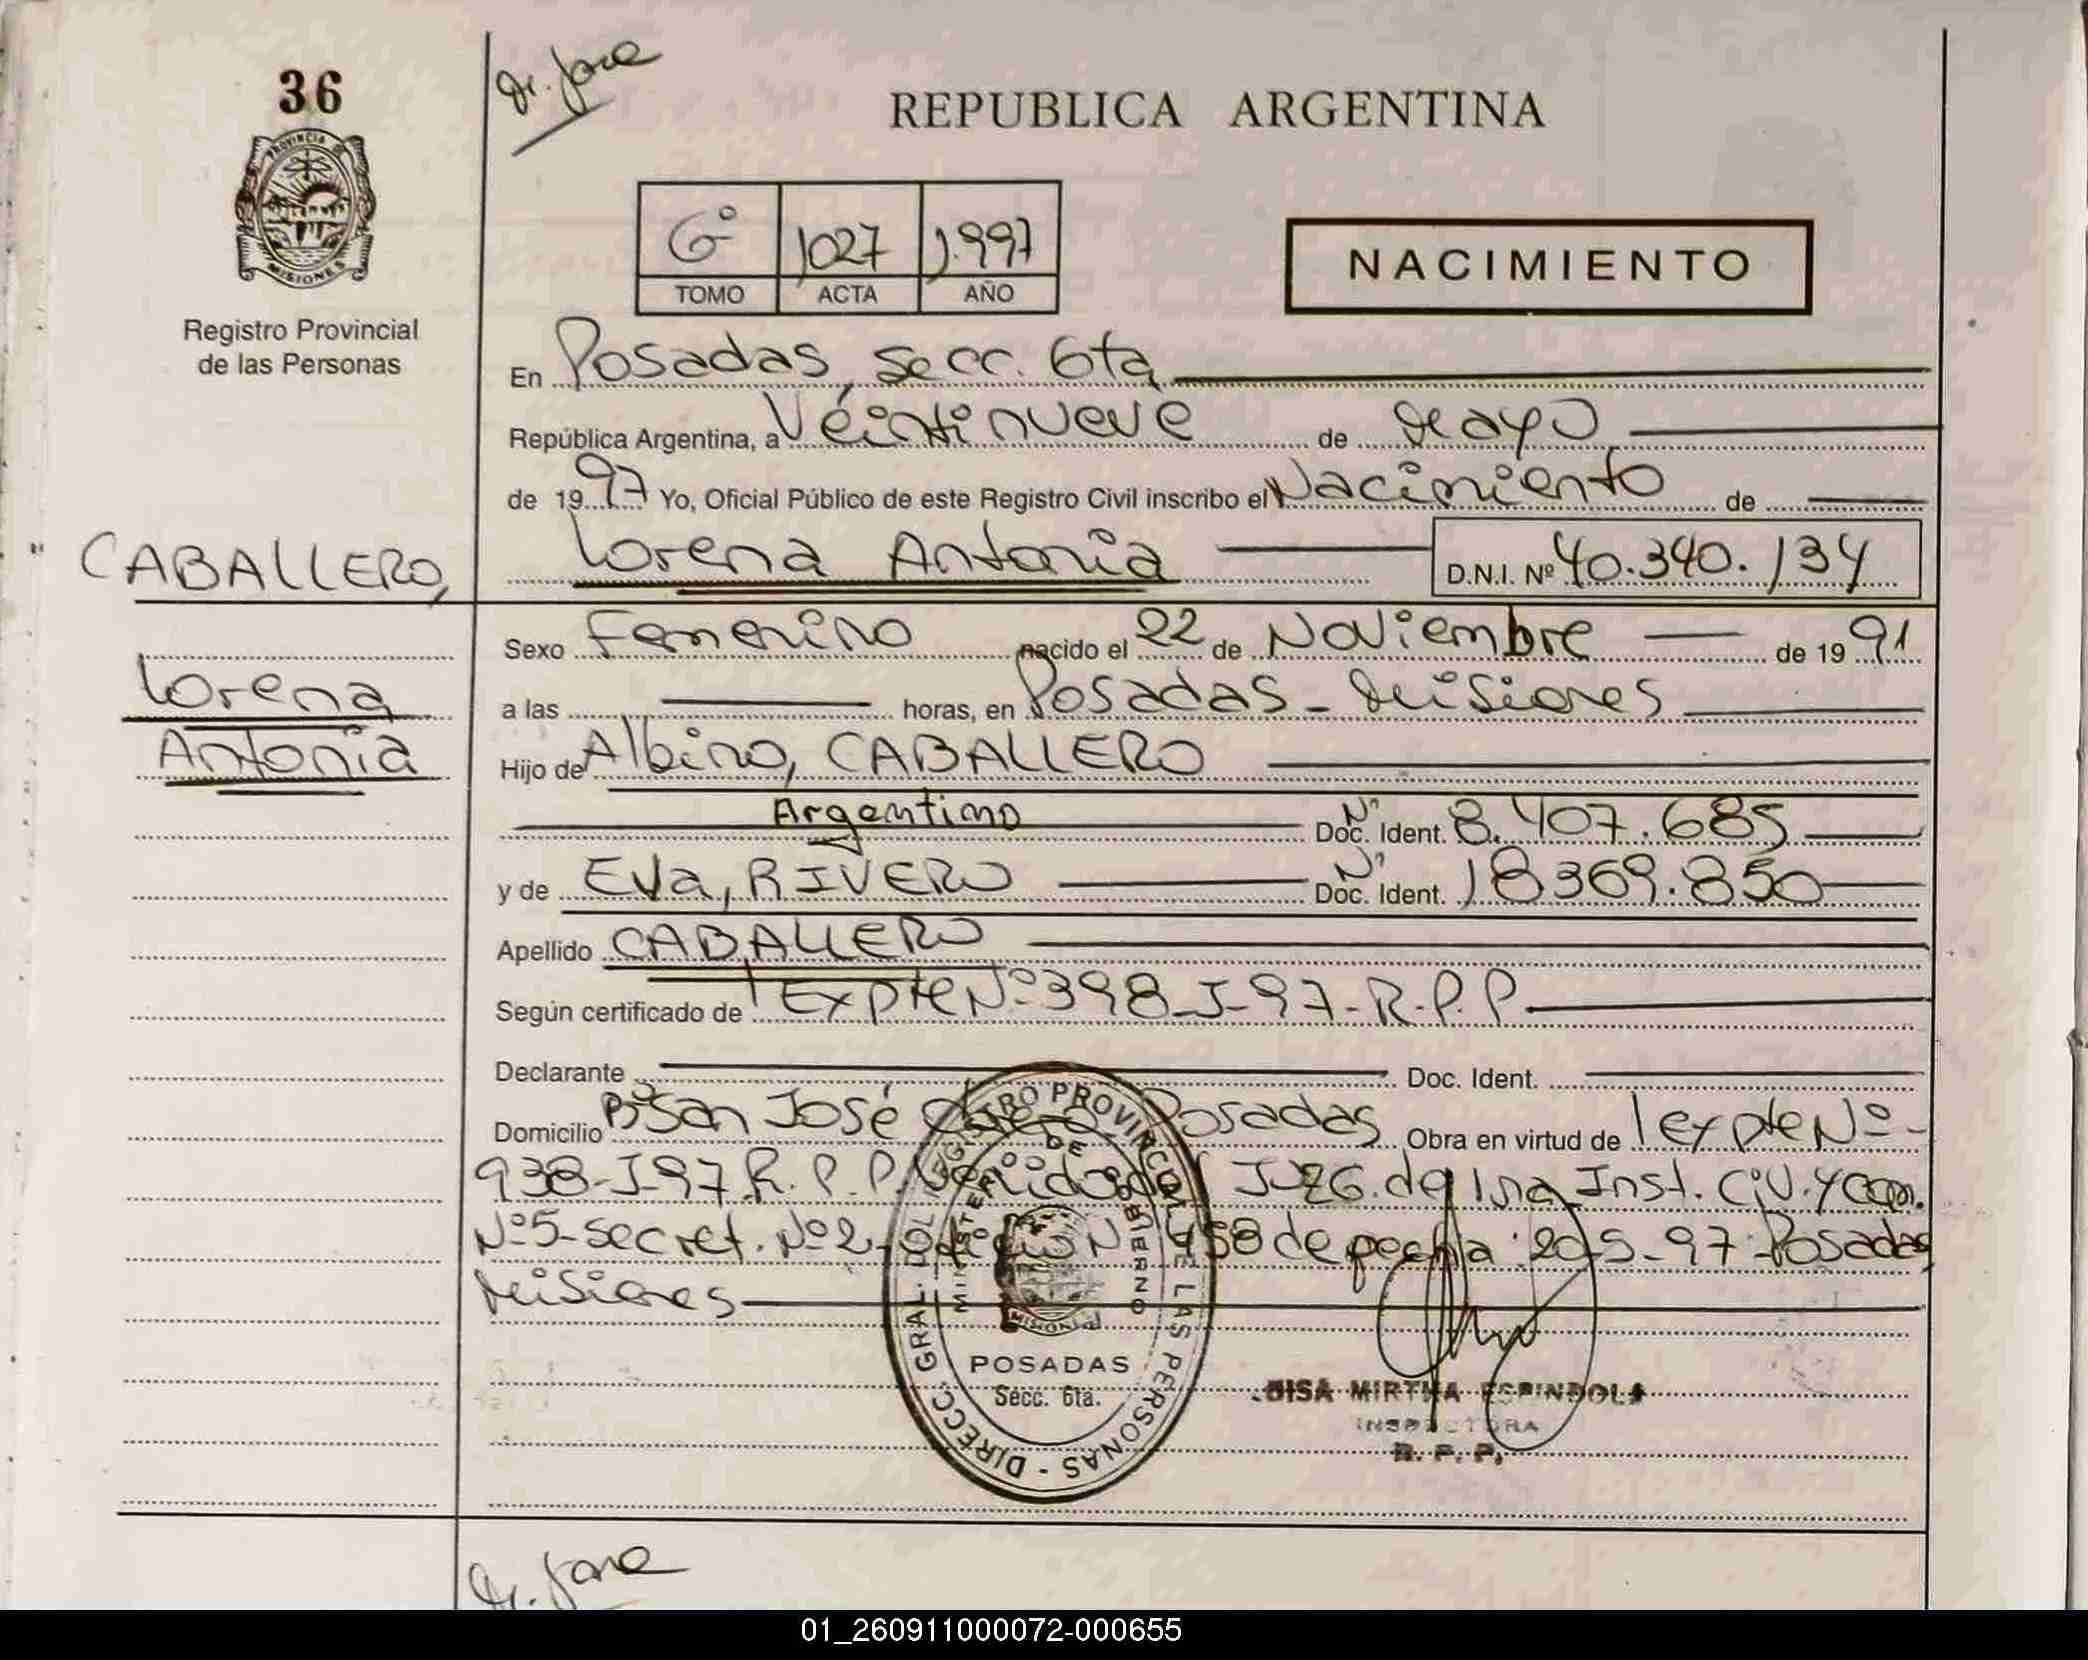 36
PROVINCIA DE
MISIONES
Registro Provincial
de las Personas
REPUBLICA ARGENTINA
6º 1027 1.997
TOMO ACTA AÑO
NACIMIENTO
En Posadas, secc. 6ta
República Argentina, a Veintinueve de Mayo
de 1997 Yo, Oficial Público de este Registro Civil inscribo el Nacimiento de
CABALLERO,
Lorena Antonia D.N.I. Nº 40.340.134
Sexo Femenino nacido el 22 de Noviembre de 1991
Lorena
a las horas, en Posadas - Misiones
Antonia
Hijo de Albino, CABALLERO
Argentino Doc. Ident. Nº 8.407.685
y de Eva, RIVERO Doc. Ident. Nº 18369.850
Apellido CABALLERO
Según certificado de Expte Nº 398-I-97-R.P.P
Declarante Doc. Ident.
Domicilio Bº San José Posadas Obra en virtud de Expte Nº-
938-I-97 R.P.P. Juzg. de 1ra Inst. Civ. y Com.
Nº5-Secret. Nº2- 458 de fecha 20-5-97-Posadas
Misiones
DIRECC. GRAL. DEL REGISTRO PROVINCIAL DE LAS PERSONAS
MINISTERIO DE GOBIERNO
MISIONES
POSADAS
Secc. 6ta.
MIRTHA ESPINDOLA
INSPECTORA
R. P. P.
01_260911000072-000655